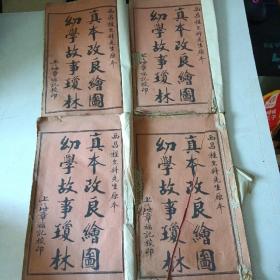 西昌程允升先生原本
真本改良繪圖
幼學故事瓊林
上海章福記校印
西昌程允升先生原本
真本改良繪圖
幼學故事瓊林
上海章福記校印
西昌程允升先生原本
真本改良繪圖
幼學故事瓊林
上海章福記校印
西昌程允升先生原本
真本改良繪圖
幼學故事瓊林
上海章福記校印